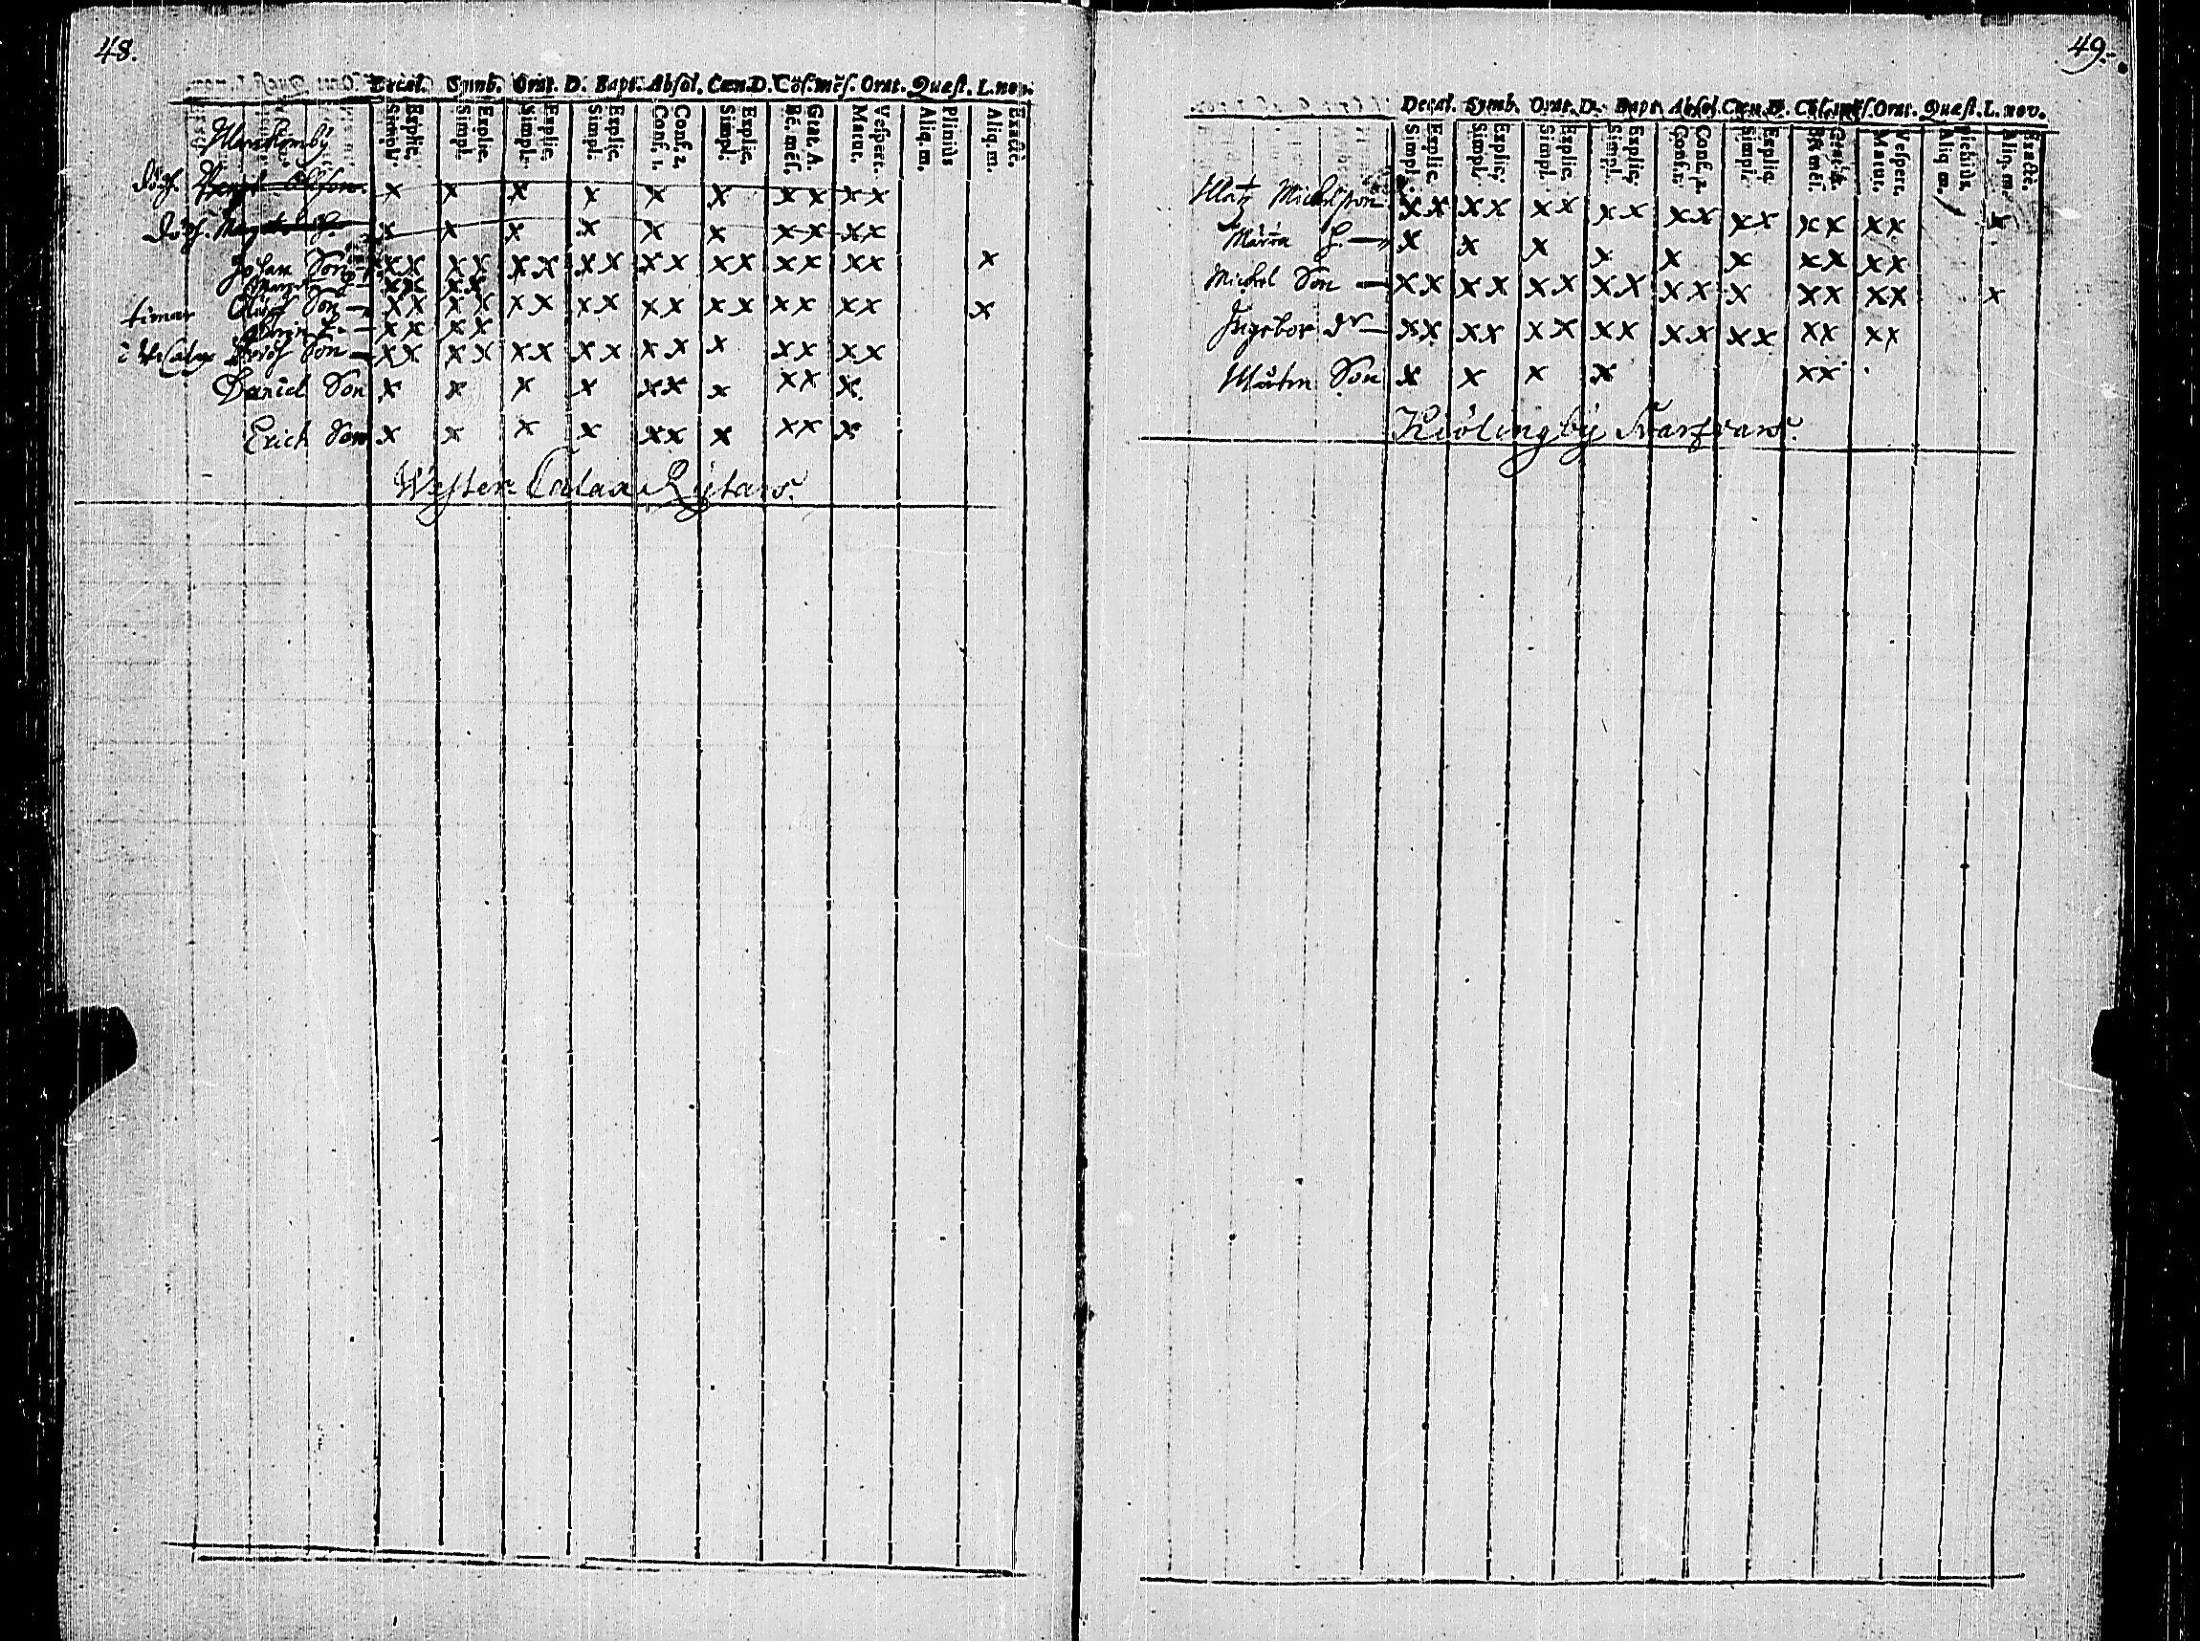 48.
Decal. Symb. Orat. D. Bapt. Absol. Cœn. D. Cōf. mēſ. Orat. Quæſt. L. nov.
Simpl. Explic. Simpl. Explic. Simpl. Explic. Simpl. Explic. Conf. 1. Conf. 2. Simpl. Explic. Bē. mēſ. Grat. A. Matut. Veſpert. Aliq. m. Plenius Aliq. m. Exactè.
Marskomby
Död. x x x x x x x x x x
Död. x x x x x x x x x x
Johan Son x x x x x x x x x x x x x x x x x
x x x x
Oluf Son x x x x x x x x x x x x x x x x x
x x x x
Son x x x x x x x x x x x x x x x
Daniel Son x x x x x x x x x x
Erich Son x x x x x x x x x x
Wester Calax Rijtars.
49.
Decal. Symb. Orat. D. Bapt. Absol. Cœn. D. Cōf. mēſ. Orat. Quæſt. L. nov.
Simpl. Explic. Simpl. Explic. Simpl. Explic. Simpl. Explic. Conf. 1. Conf. 2. Simpl. Explic. Bē. mēſ. Grat. A. Matut. Veſpert. Aliq. m. Plenius Aliq. m. Exactè.
Matz Michelsson x x x x x x x x x x x x x x x x x
Marta H. x x x x x x x x x x
Michel Son x x x x x x x x x x x x x x x x
Ingebor dr x x x x x x x x x x x x x x x x
Mårten Son x x x x x x
Kiölingby